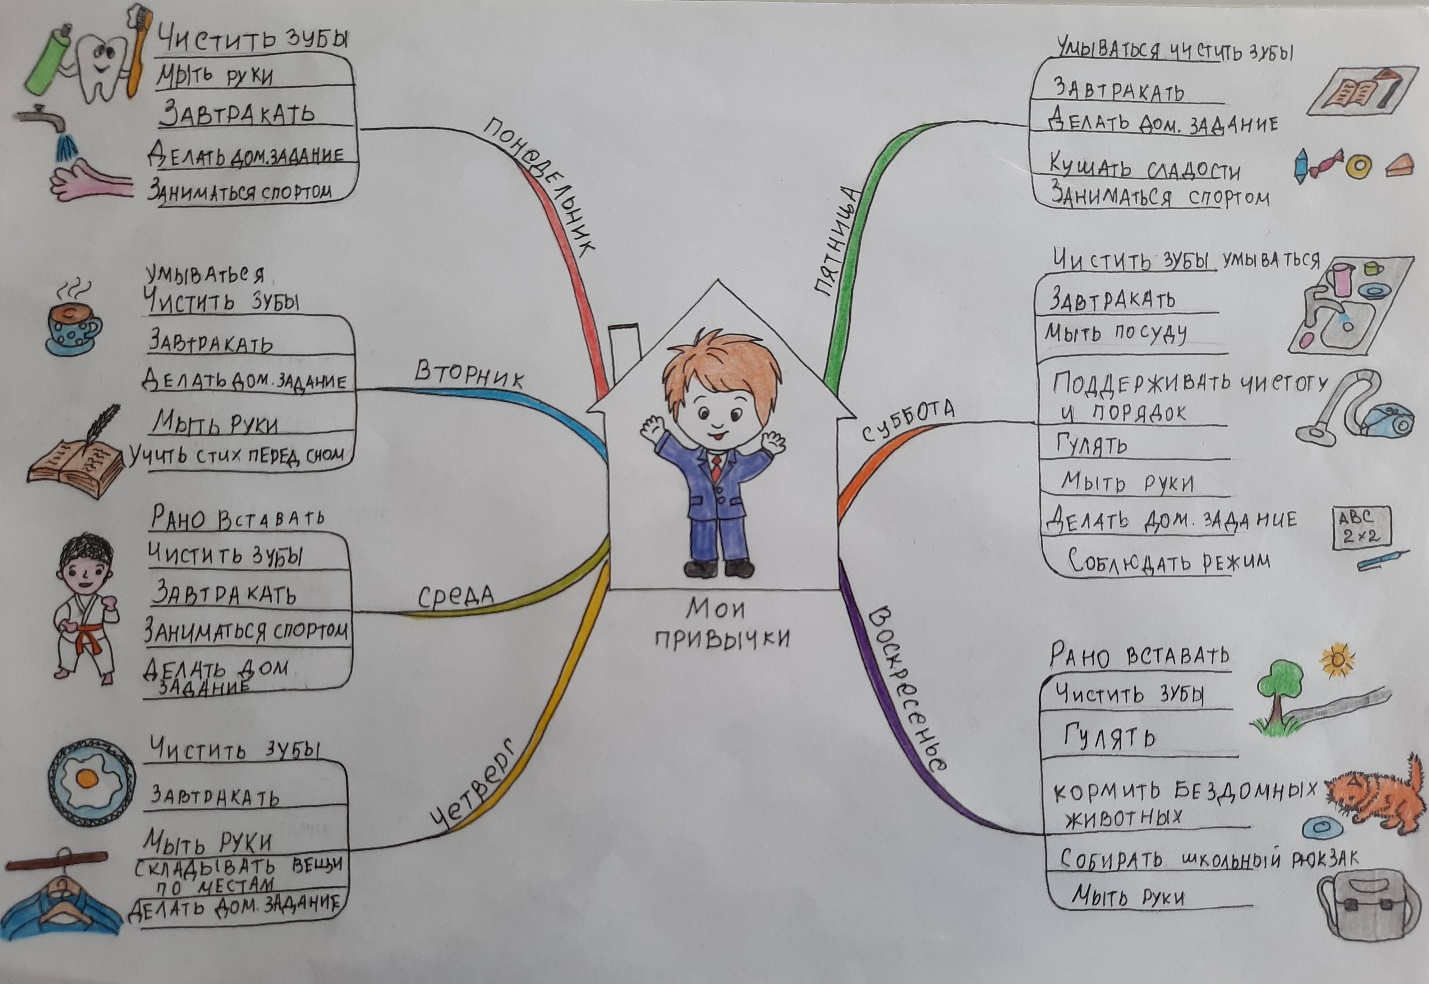 Чистить зубы
Мыть руки
Завтракать
Делать дом.задание
Заниматься спортом
Понедельник
Умываться
Чистить зубы
Завтракать
Делать дом.задание
Мыть руки
Учить стих перед сном
Вторник
Рано вставать
Чистить зубы
Завтракать
Заниматься спортом
Делать дом
задание
Среда
Чистить зубы
Завтракать
Мыть руки
Складывать вещи
по местам
Делать дом.задание
Четверг
Мои
привычки
Пятница
Умываться чистить зубы
Завтракать
Делать дом. задание
Кушать сладости
Заниматься спортом
Суббота
Чистить зубы умываться
Завтракать
Мыть посуду
Поддерживать чистоту
и порядок
Гулять
Мыть руки
Делать дом. задание
Соблюдать режим
ABC
2×2
Воскресенье
Рано вставать
Чистить зубы
Гулять
кормить бездомных
животных
Собирать школьный рюкзак
Мыть руки